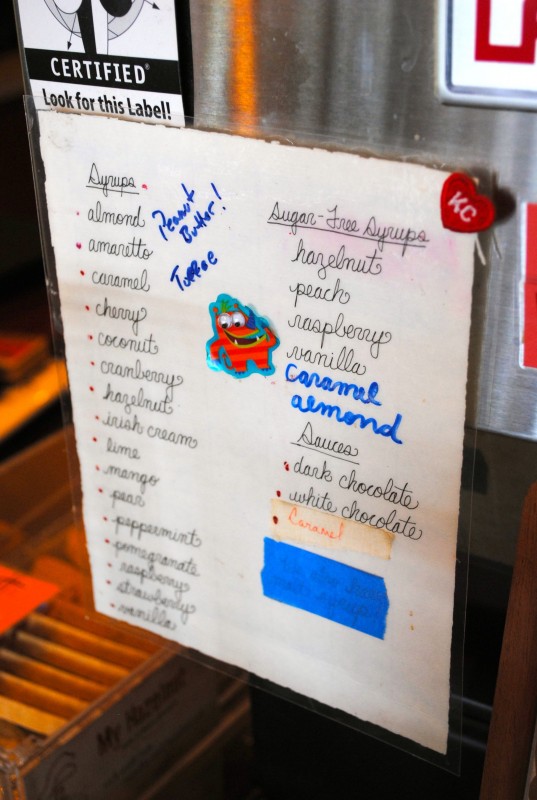 CERTIFIED
Look for this Label!
KC
Syrups
almond
amaretto
caramel
cherry
coconut
cranberry
hazelnut
irish cream
lime
mango
pear
peppermint
pomegranate
raspberry
strawberry
vanilla
Peanut
Butter!
Toffee
Sugar-Free Syrups
hazelnut
peach
raspberry
vanilla
Caramel
almond
Sauces
dark chocolate
white chocolate
Caramel